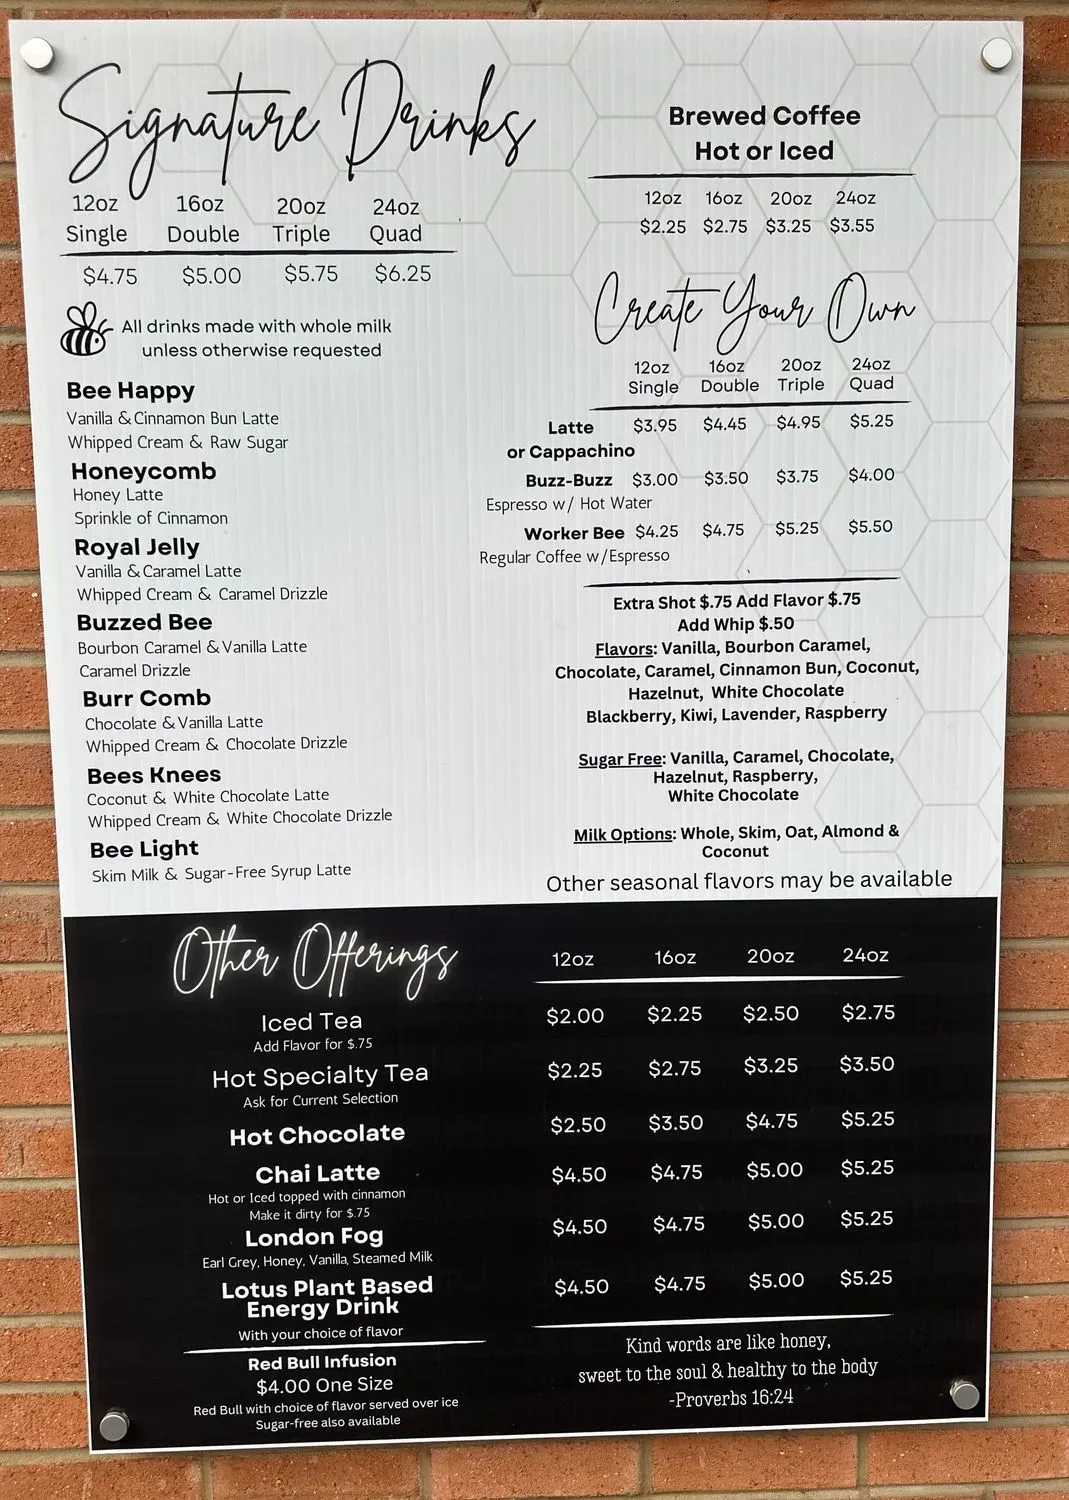 Signature Drinks
12oz 16oz 20oz 24oz
Single Double Triple Quad
$4.75 $5.00 $5.75 $6.25
All drinks made with whole milk
unless otherwise requested
Bee Happy
Vanilla & Cinnamon Bun Latte
Whipped Cream & Raw Sugar
Honeycomb
Honey Latte
Sprinkle of Cinnamon
Royal Jelly
Vanilla & Caramel Latte
Whipped Cream & Caramel Drizzle
Buzzed Bee
Bourbon Caramel & Vanilla Latte
Caramel Drizzle
Burr Comb
Chocolate & Vanilla Latte
Whipped Cream & Chocolate Drizzle
Bees Knees
Coconut & White Chocolate Latte
Whipped Cream & White Chocolate Drizzle
Bee Light
Skim Milk & Sugar-Free Syrup Latte
Brewed Coffee
Hot or Iced
12oz 16oz 20oz 24oz
$2.25 $2.75 $3.25 $3.55
Create Your Own
12oz 16oz 20oz 24oz
Single Double Triple Quad
Latte $3.95 $4.45 $4.95 $5.25
or Cappachino
Buzz-Buzz $3.00 $3.50 $3.75 $4.00
Espresso w/ Hot Water
Worker Bee $4.25 $4.75 $5.25 $5.50
Regular Coffee w/Espresso
Extra Shot $.75 Add Flavor $.75
Add Whip $.50
Flavors: Vanilla, Bourbon Caramel,
Chocolate, Caramel, Cinnamon Bun, Coconut,
Hazelnut, White Chocolate
Blackberry, Kiwi, Lavender, Raspberry
Sugar Free: Vanilla, Caramel, Chocolate,
Hazelnut, Raspberry,
White Chocolate
Milk Options: Whole, Skim, Oat, Almond &
Coconut
Other seasonal flavors may be available
Other Offerings 12oz 16oz 20oz 24oz
Iced Tea $2.00 $2.25 $2.50 $2.75
Add Flavor for $.75
Hot Specialty Tea $2.25 $2.75 $3.25 $3.50
Ask for Current Selection
Hot Chocolate $2.50 $3.50 $4.75 $5.25
Chai Latte $4.50 $4.75 $5.00 $5.25
Hot or Iced topped with cinnamon
Make it dirty for $.75
London Fog $4.50 $4.75 $5.00 $5.25
Earl Grey, Honey, Vanilla, Steamed Milk
Lotus Plant Based $4.50 $4.75 $5.00 $5.25
Energy Drink
With your choice of flavor
Red Bull Infusion
$4.00 One Size
Red Bull with choice of flavor served over ice
Sugar-free also available
Kind words are like honey,
sweet to the soul & healthy to the body
-Proverbs 16:24